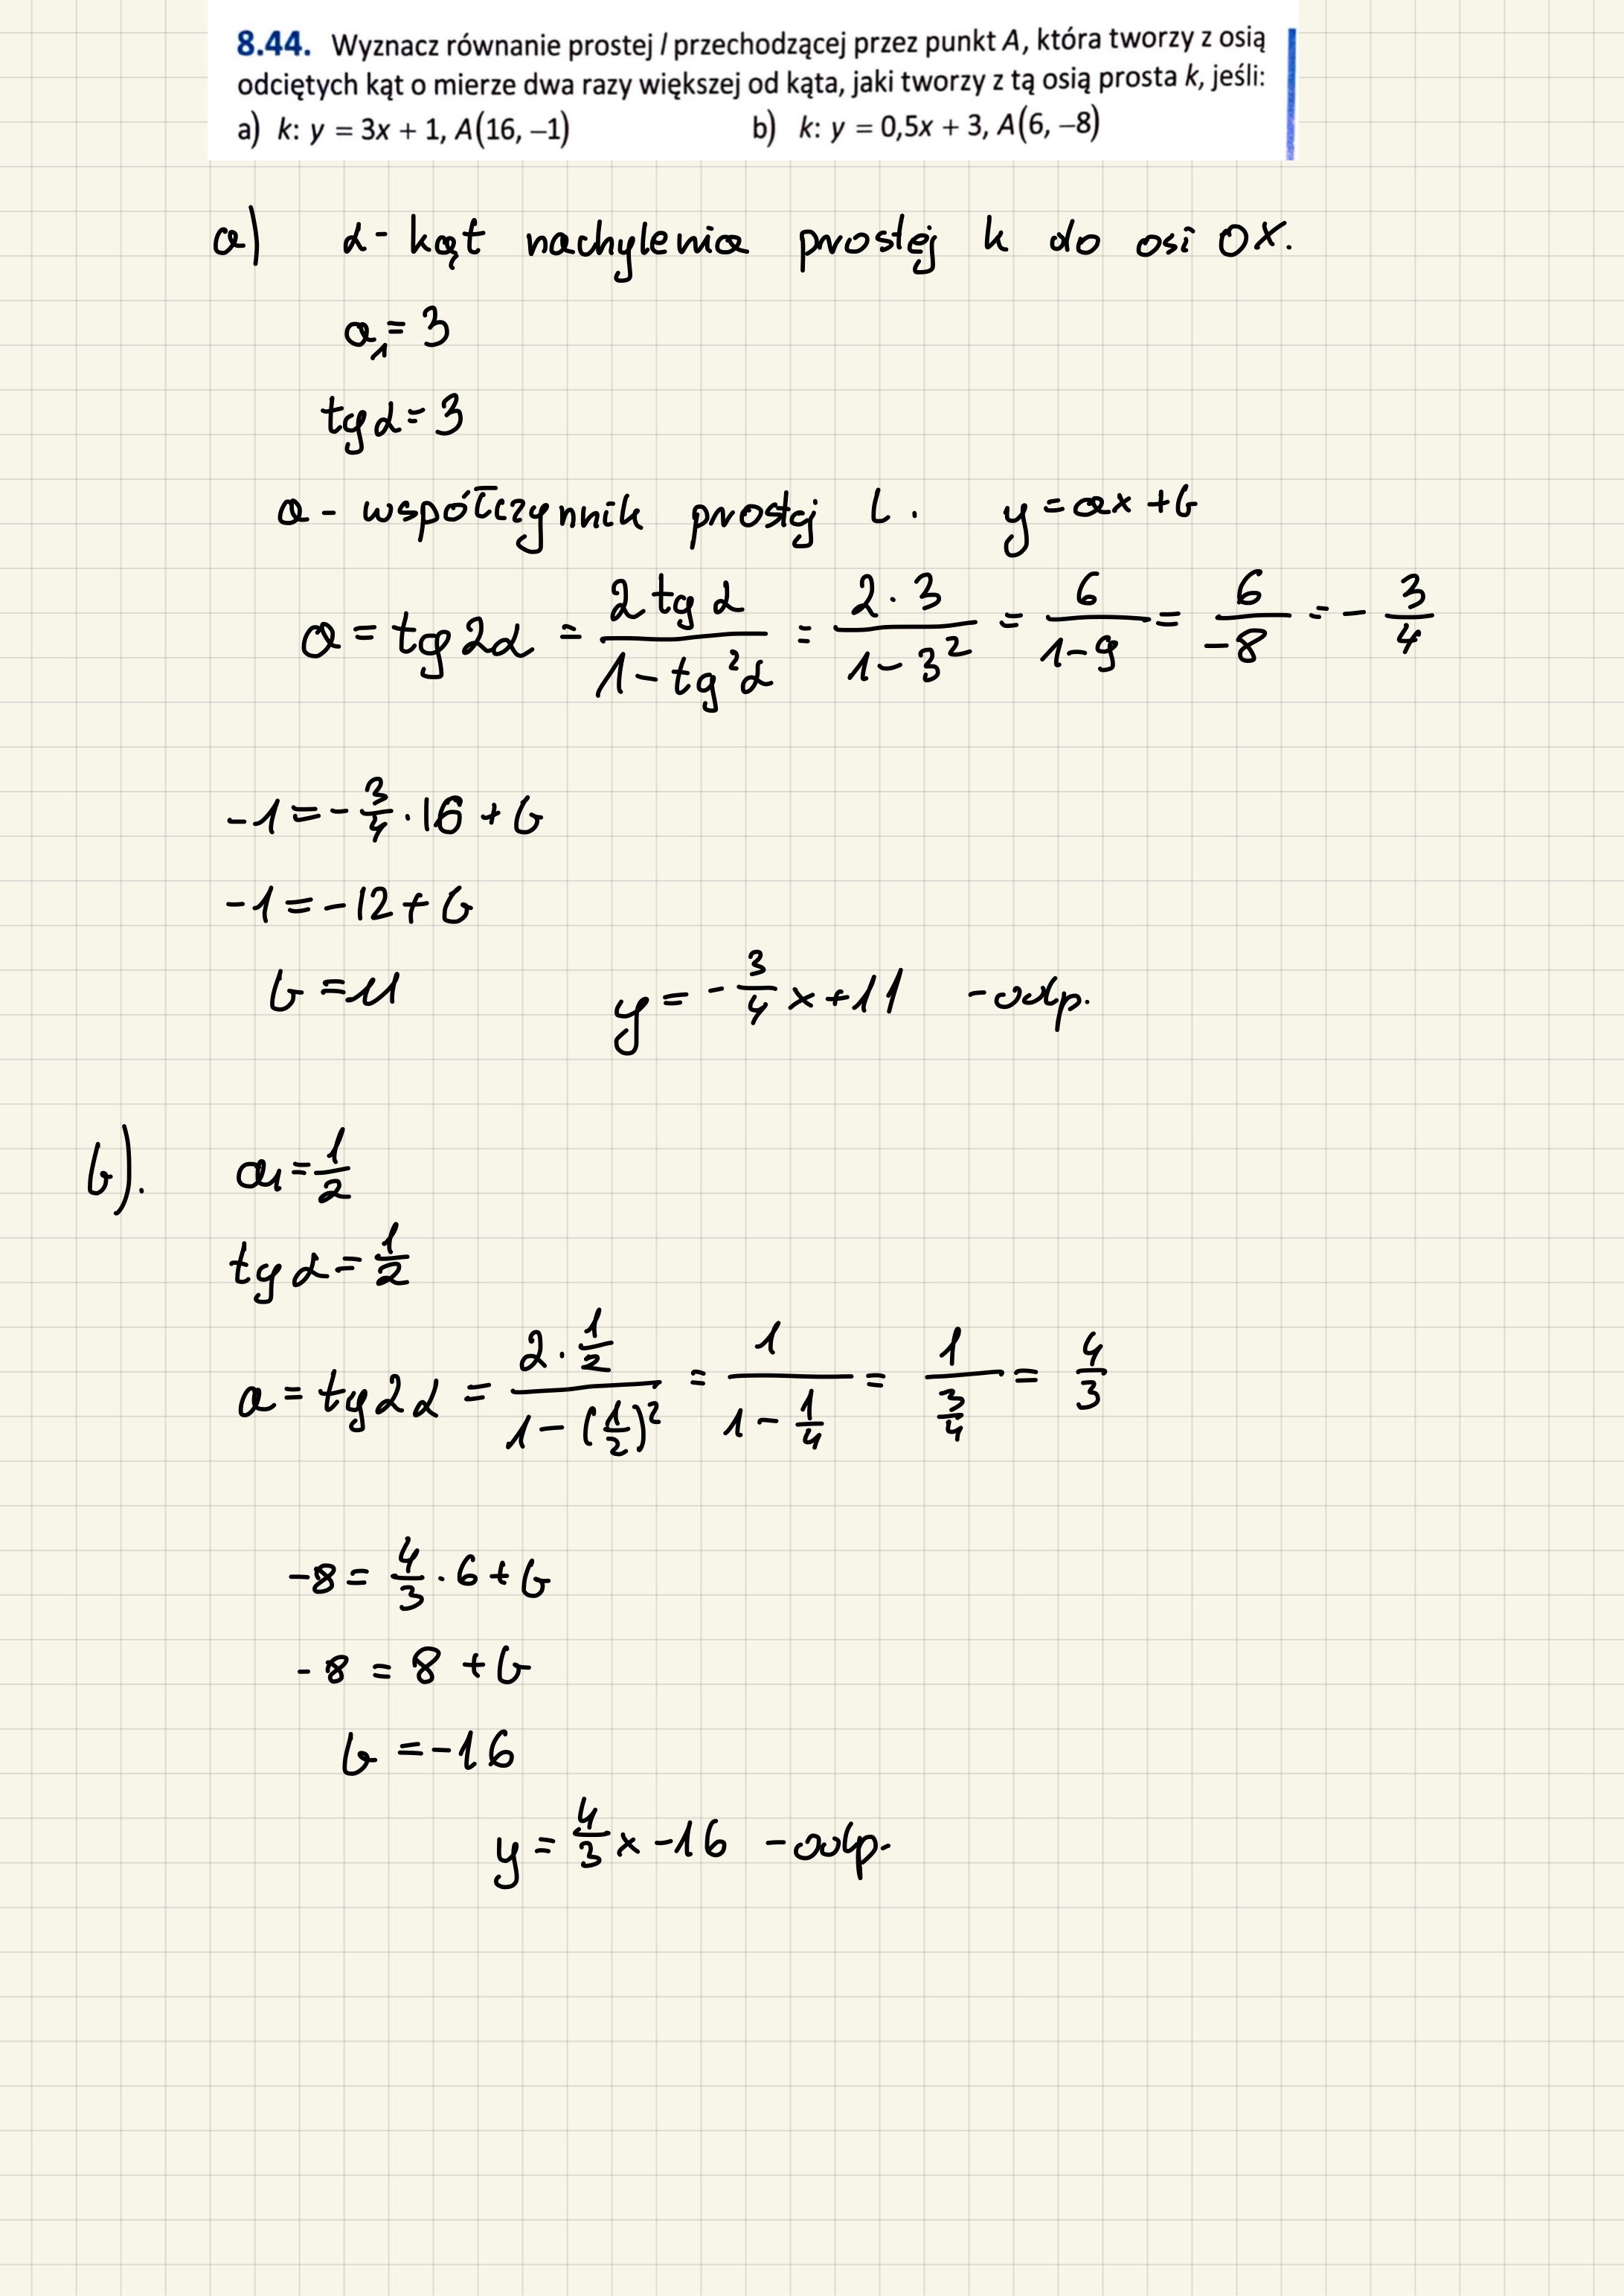 8.44. Wyznacz równanie prostej l przechodzącej przez punkt A, która tworzy z osią
odciętych kąt o mierze dwa razy większej od kąta, jaki tworzy z tą osią prosta k, jeśli:
a) k: y = 3x + 1, A(16, –1) b) k: y = 0,5x + 3, A(6, –8)
a) α - kąt nachylenia prostej k do osi OX.
a₁ = 3
tg α = 3
a - współczynnik prostej l. y = ax + b
a = tg 2α = \frac{2 tg α}{1 - tg² α} = \frac{2 · 3}{1 - 3²} = \frac{6}{1 - 9} = \frac{6}{-8} = - \frac{3}{4}
-1 = - \frac{3}{4} · 16 + b
-1 = -12 + b
b = 11 y = - \frac{3}{4} x + 11 - odp.
b). a₁ = \frac{1}{2}
tg α = \frac{1}{2}
a = tg 2α = \frac{2 · \frac{1}{2}}{1 - (\frac{1}{2})²} = \frac{1}{1 - \frac{1}{4}} = \frac{1}{\frac{3}{4}} = \frac{4}{3}
-8 = \frac{4}{3} · 6 + b
-8 = 8 + b
b = -16
y = \frac{4}{3} x - 16 - odp.